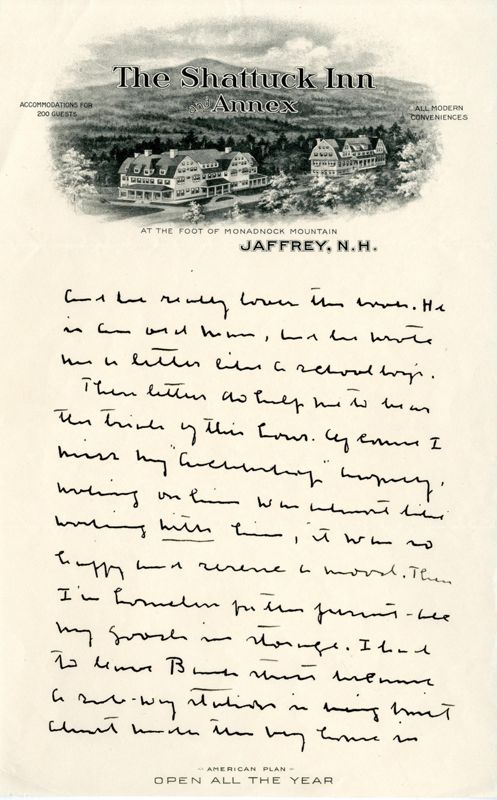 The Shattuck Inn
and Annex
ACCOMMODATIONS FOR
200 GUESTS
ALL MODERN
CONVENIENCES
AT THE FOOT OF MONADNOCK MOUNTAIN
JAFFREY, N.H.
and he really loves the book. He
is an old man, and he wrote
me a letter like a schoolboy.
These letters do help me to bear
the trials of this hour. Of course I
miss my "Archbishop"
working on him was almost like
working with him, it was so
happy and serene a mood. Then
I'm homeless for the present - all
my goods in storage. I had
to leave Bank street because
a sub-way station is being built
almost under the very house in
- AMERICAN PLAN -
OPEN ALL THE YEAR